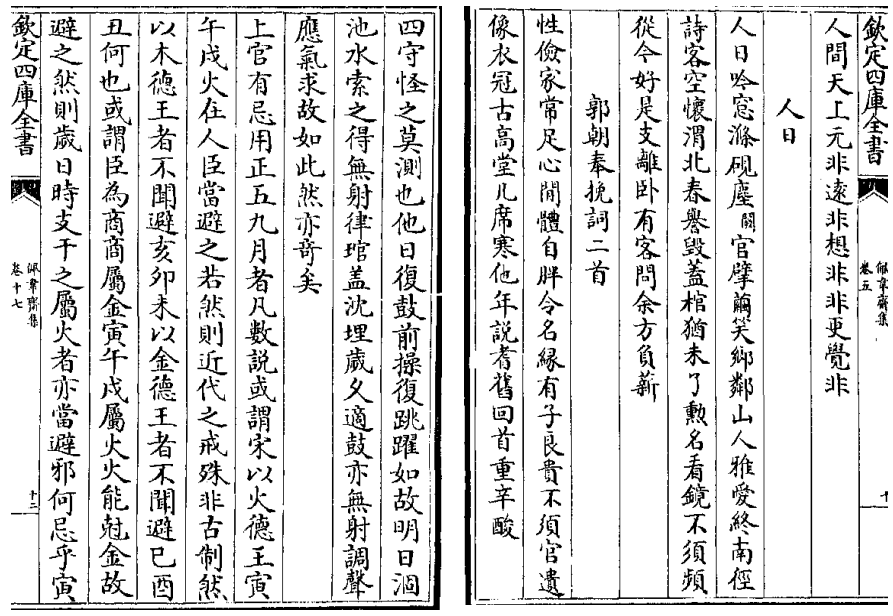 欽定四庫全書
人間天上元非逺非想非非更覺非
人日
人日吟窓滌硯塵闕官擘繭笑鄉鄰山人雅愛終南徑
詩客空懷渭北春譽毀蓋棺猶未了勲名看鏡不須頻
從今好是支離卧有客問余方負薪
郭朝奉挽詞二首
性儉家常足心閒體自胖令名縁有子良貴不須官遺
像衣冠古高堂几席寒他年説耆舊回首重辛酸
佩韋齋集
卷五
十
四守怪之莫測也他日復鼓前操復跳躍如故明日涸
池水索之得無射律琯盖沈埋歲久適鼓亦無射調聲
應氣求故如此然亦竒矣
上官有忌用正五九月者凡數説或謂宋以火德王寅
午戌火在人臣當避之若然則近代之戒殊非古制然
以木德王者不聞避亥卯未以金德王者不聞避巳酉
丑何也或謂臣為商商屬金寅午戌屬火火能尅金故
避之然則歲日時支干之屬火者亦當避邪何忌乎寅
欽定四庫全書
佩韋齋集
卷十七
十二